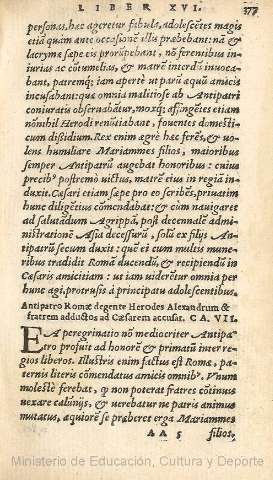 LIBER XVI. 377
personas, hæc ageretur fabula, adolescẽtes magis
etiã quàm ante occasionẽ illis præbebant: nã &
lacrymæ sæpe eis prorũpebant, nõ ferentibus in-
iurias ac cõtumelias, & matrẽ interdũ inuoca-
bant, patremq; iam apertè ut parũ æquũ amicis
incusabant: quæ omnia malitiosè ab Antipatri
coniuratis obseruabãtur, moxq; affingẽtes etiam
nõnihil Herodi renũtiabant, fouentes domesti-
cum dissidium. Rex enim ægrè hæc ferẽs, & uo-
lens humiliare Mariammes filios, maioribus
semper Antipatrũ augebat honoribus: cuius
precibꝰ postremò uictus, matrẽ eius in regiã in-
duxit. Cæsari etiam sæpe pro eo scribẽs, priuatim
hunc diligẽter cõmendabat: & cùm nauigaret
ad salutandum Agrippã, post decennalẽ admi-
nistrationẽ Asia decessurũ, solũ ex filijs Anti-
patrũ secum duxit: quẽ ei cum multis mune-
ribus tradidit Romã ducendũ, & recipiendũ in
Cæsaris amicitiam: ut iam uideretur omnia per
hunc agi, protrusis à principatu adolescentibus.
Antipatro Romæ degente Herodes Alexandrum &
fratrem adductos ad Cæsarem accusat. CA. VII.
EA peregrinatio nõ mediocriter Antipa-
tro profuit ad honorẽ & primatũ inter re-
gios liberos. Illustris enim factus est Romæ, pa-
ternis literis cõmendatus amicis omnibꝰ. Vnum
molestè ferebat, ꝙ non poterat fratres cõtinuis
uexare calũnijs, & uerebatur ne patris animus
mutatus, æquiorẽ se præberet erga Mariammes
AA 5 filios,
Ministerio de Educación, Cultura y Deporte